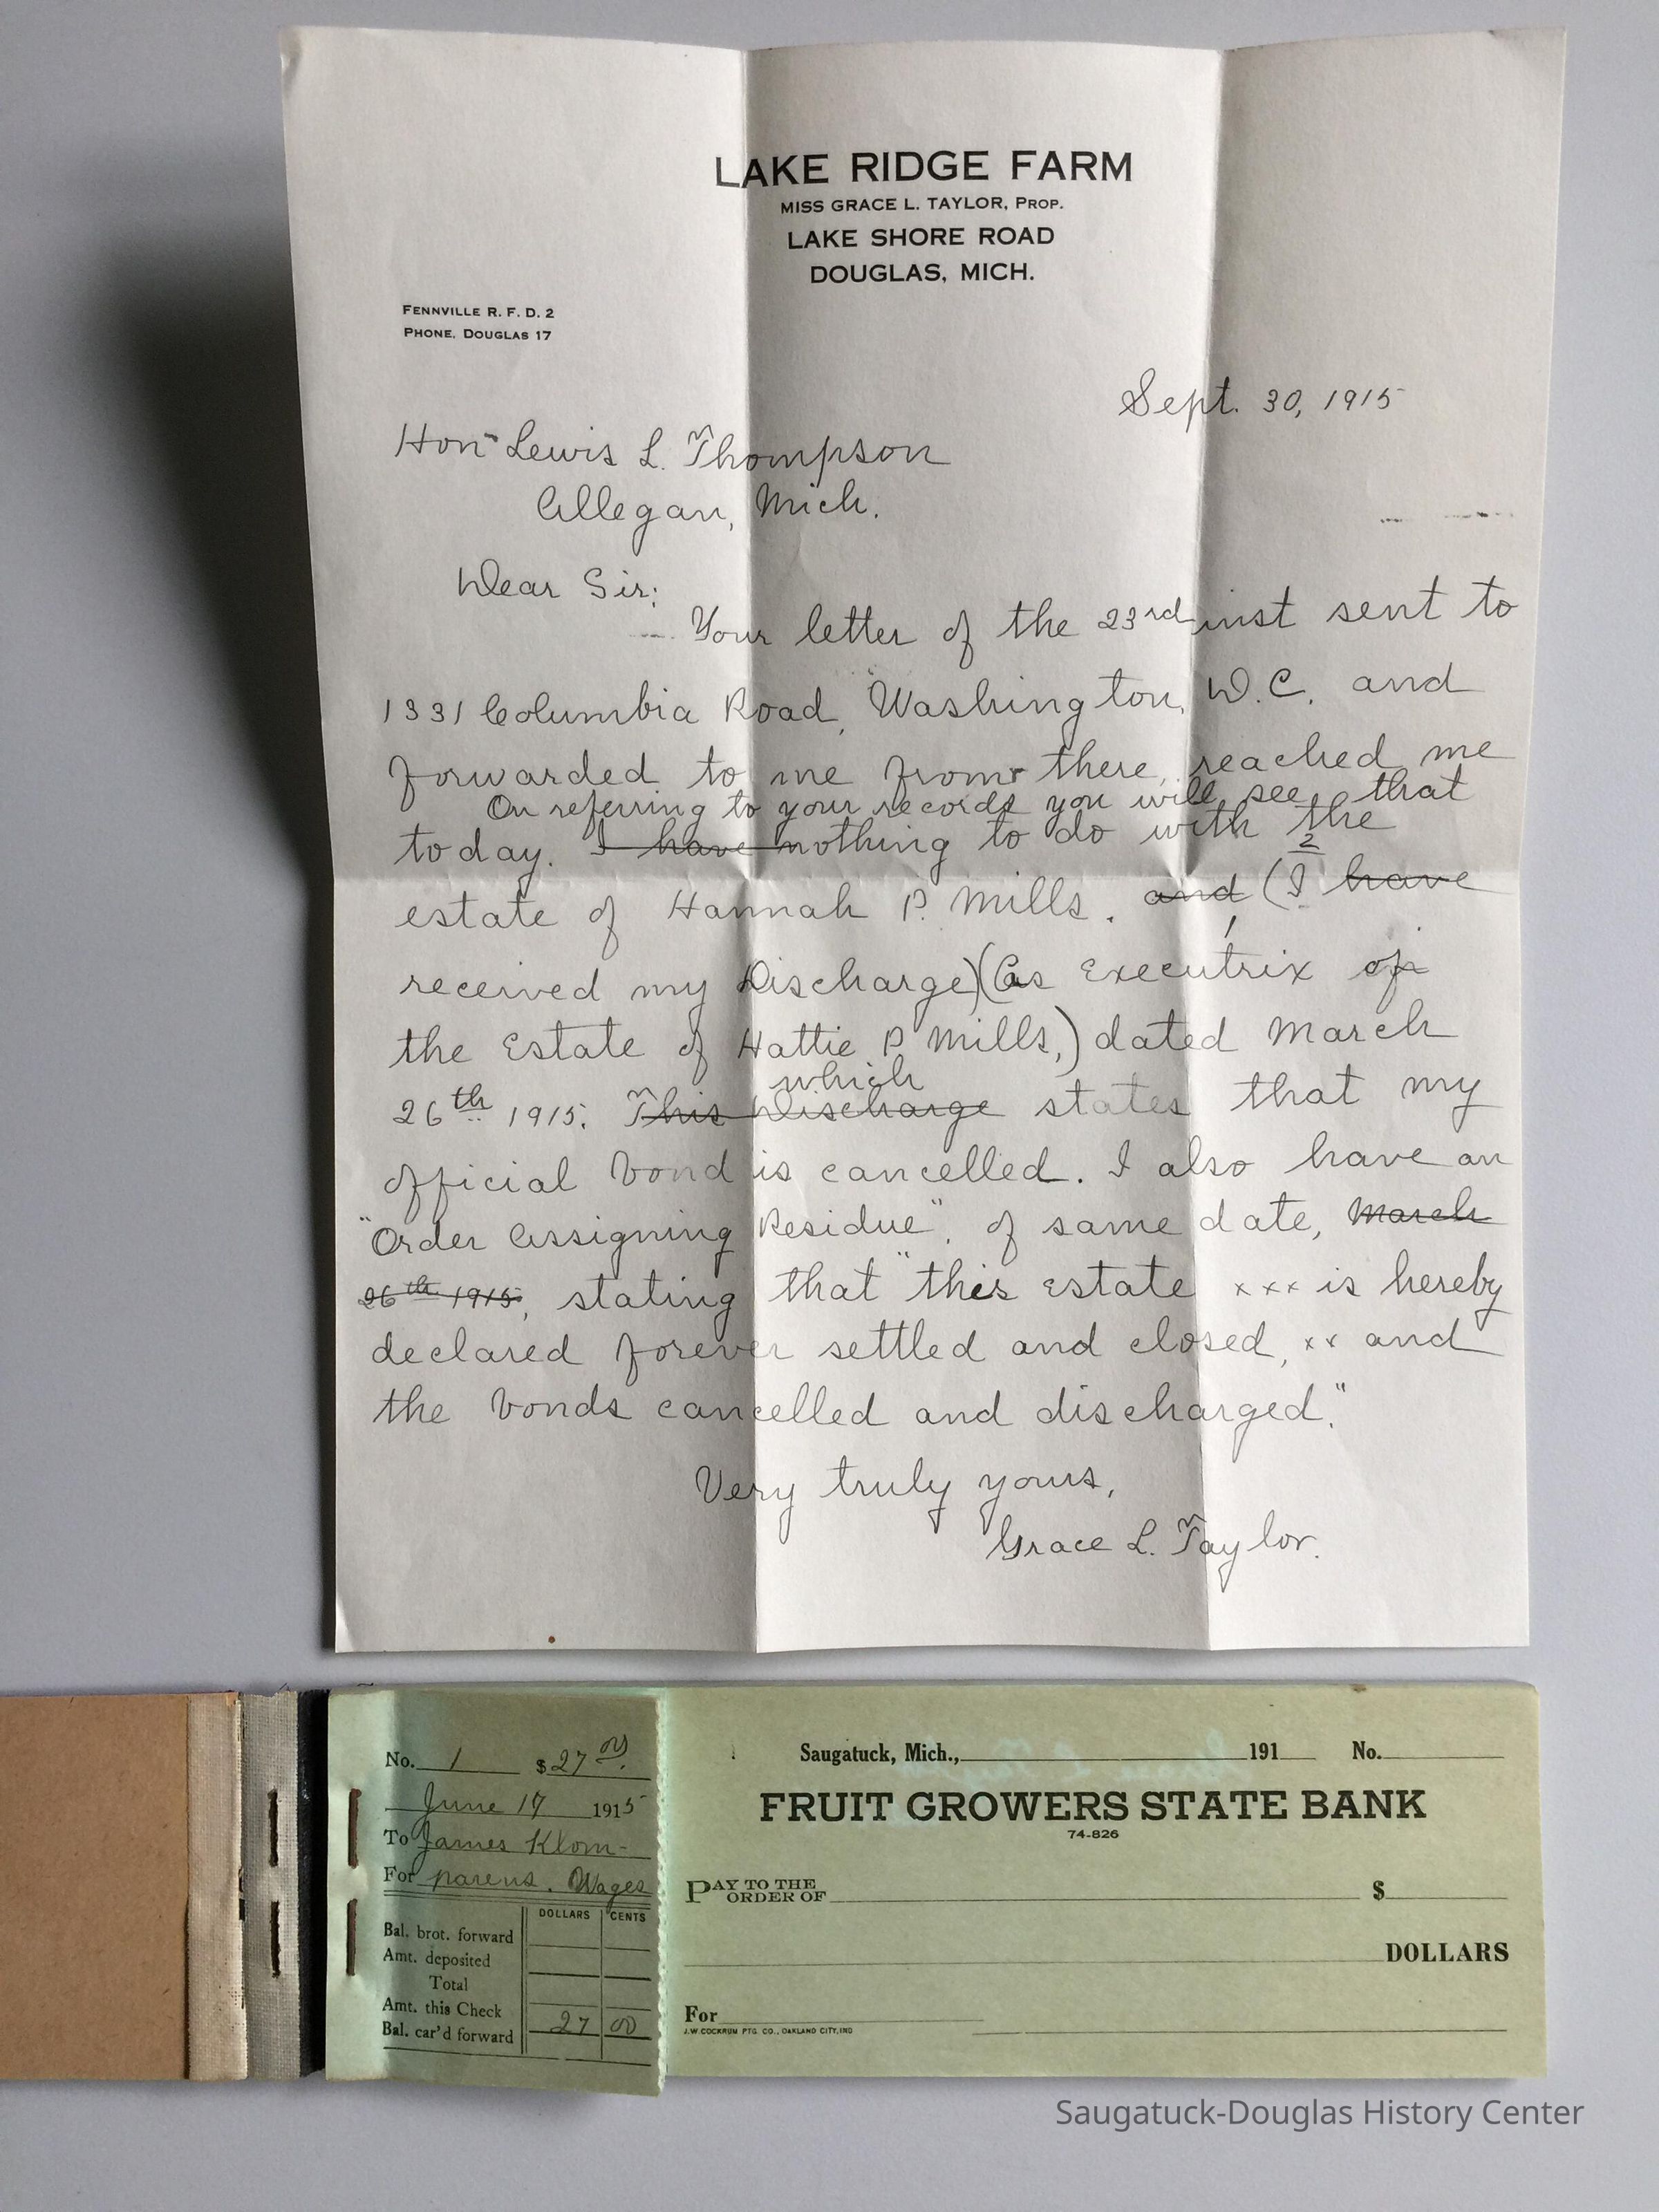 LAKE RIDGE FARM
MISS GRACE L. TAYLOR, PROP.
LAKE SHORE ROAD
DOUGLAS, MICH.
FENNVILLE R. F. D. 2
PHONE, DOUGLAS 17
Sept. 30, 1915
Hon Lewis L. Thompson
Allegan, Mich.
Dear Sir:
Your letter of the 23rd inst sent to
1331 Columbia Road, Washington, D.C. and
forwarded to me from there, reached me
On referring to your records you will see that
today. I have nothing to do with the
2
estate of Hannah P. Mills. and (I have
received my Discharge) (as Executrix of
the Estate of Hattie P Mills,) dated March
which
26th 1915. This Discharge states that my
official bond is cancelled. I also have an
"Order Assigning Residue", of same date, March
26th 1915, stating that "this Estate xxx is hereby
declared forever settled and closed, xx and
the bonds cancelled and discharged."
Very truly yours,
Grace L. Taylor.
No. 1 $27 00
June 17 1915
To James Klom-
For parens. Wages
DOLLARS CENTS
Bal. brot. forward
Amt. deposited
Total
Amt. this Check 27 00
Bal. car'd forward
Saugatuck, Mich., 191 No.
FRUIT GROWERS STATE BANK
74-826
PAY TO THE ORDER OF $
DOLLARS
For
J.W. COCKRUM PTG. CO., OAKLAND CITY, IND
Saugatuck-Douglas History Center